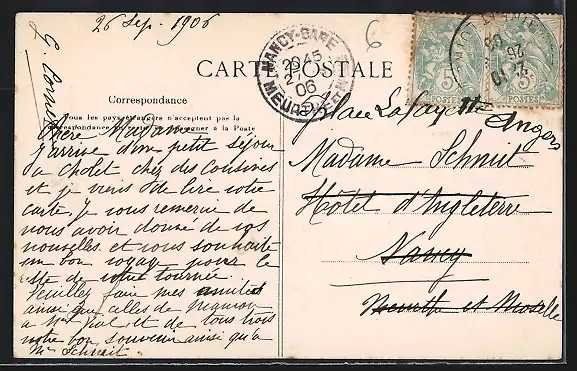 26 Sep. 1906
6
CARTE POSTALE
NANCY-GARE
MEURTHE
06
5 POSTES
5 POSTES
Correspondance
Tous les pays étrangers n'acceptent pas la
correspondance à la Poste
Chère Madame
J'arrive d'un petit séjour
à Cholet chez des cousines
et je viens de lire votre
carte. Je vous remercie de
nous avoir donné de vos
nouvelles et vous souhaite
un bon voyage pour le
reste de votre tournée.
Veuillez faire mes amitiés
ainsi que celles de
à et de tous trois
notre bon souvenir ainsi qu'à
Mr Schmit.
Place Lafayette
Angers
Madame Schmit
Hôtel d'Angleterre
Nancy
Meurthe et Moselle